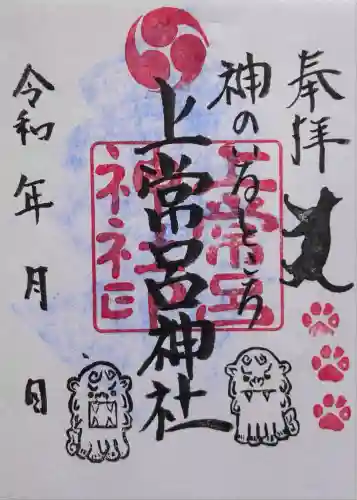 奉拝
神のいるところ
上常呂神社
上常呂神社
令和 年 月 日